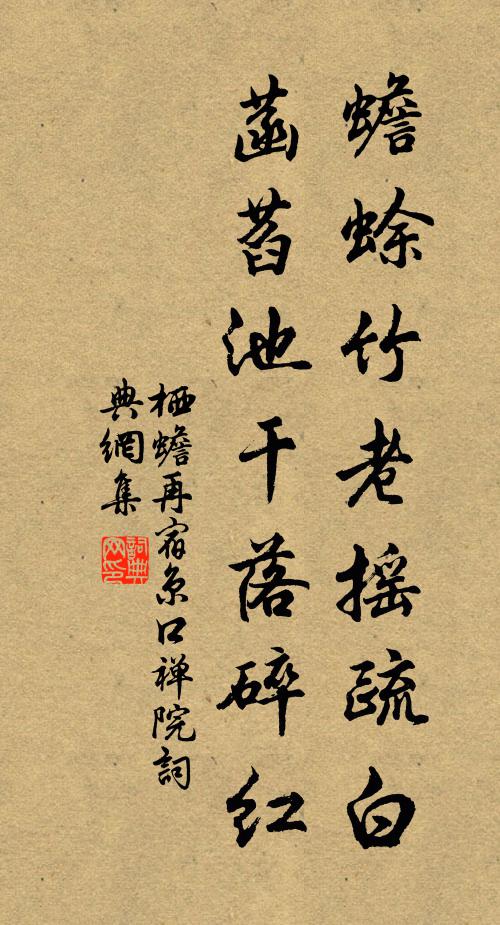 蟾蜍竹老摇疏白
菡萏池干落碎红
栖蟾再宿京口禅院詞
典網集
詞典
网印